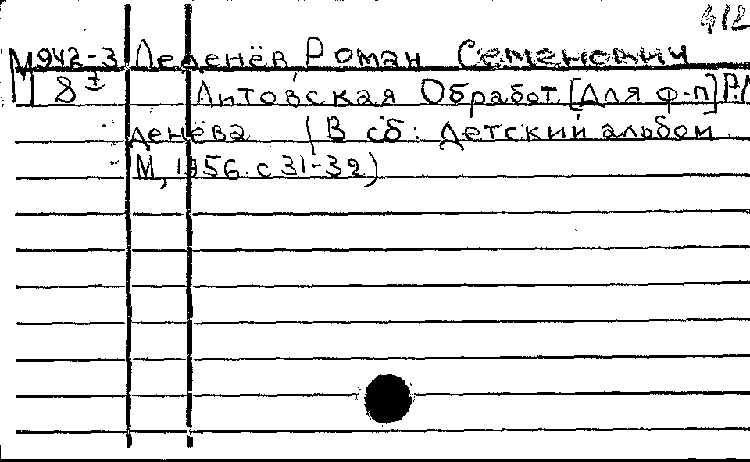 412
М942-3 Леденёв Роман Семенович
8 I Литовская Обработ. [для ф-п] Р.
денёва (В сб: Детский альбом.
М, 1956. с 31-32)